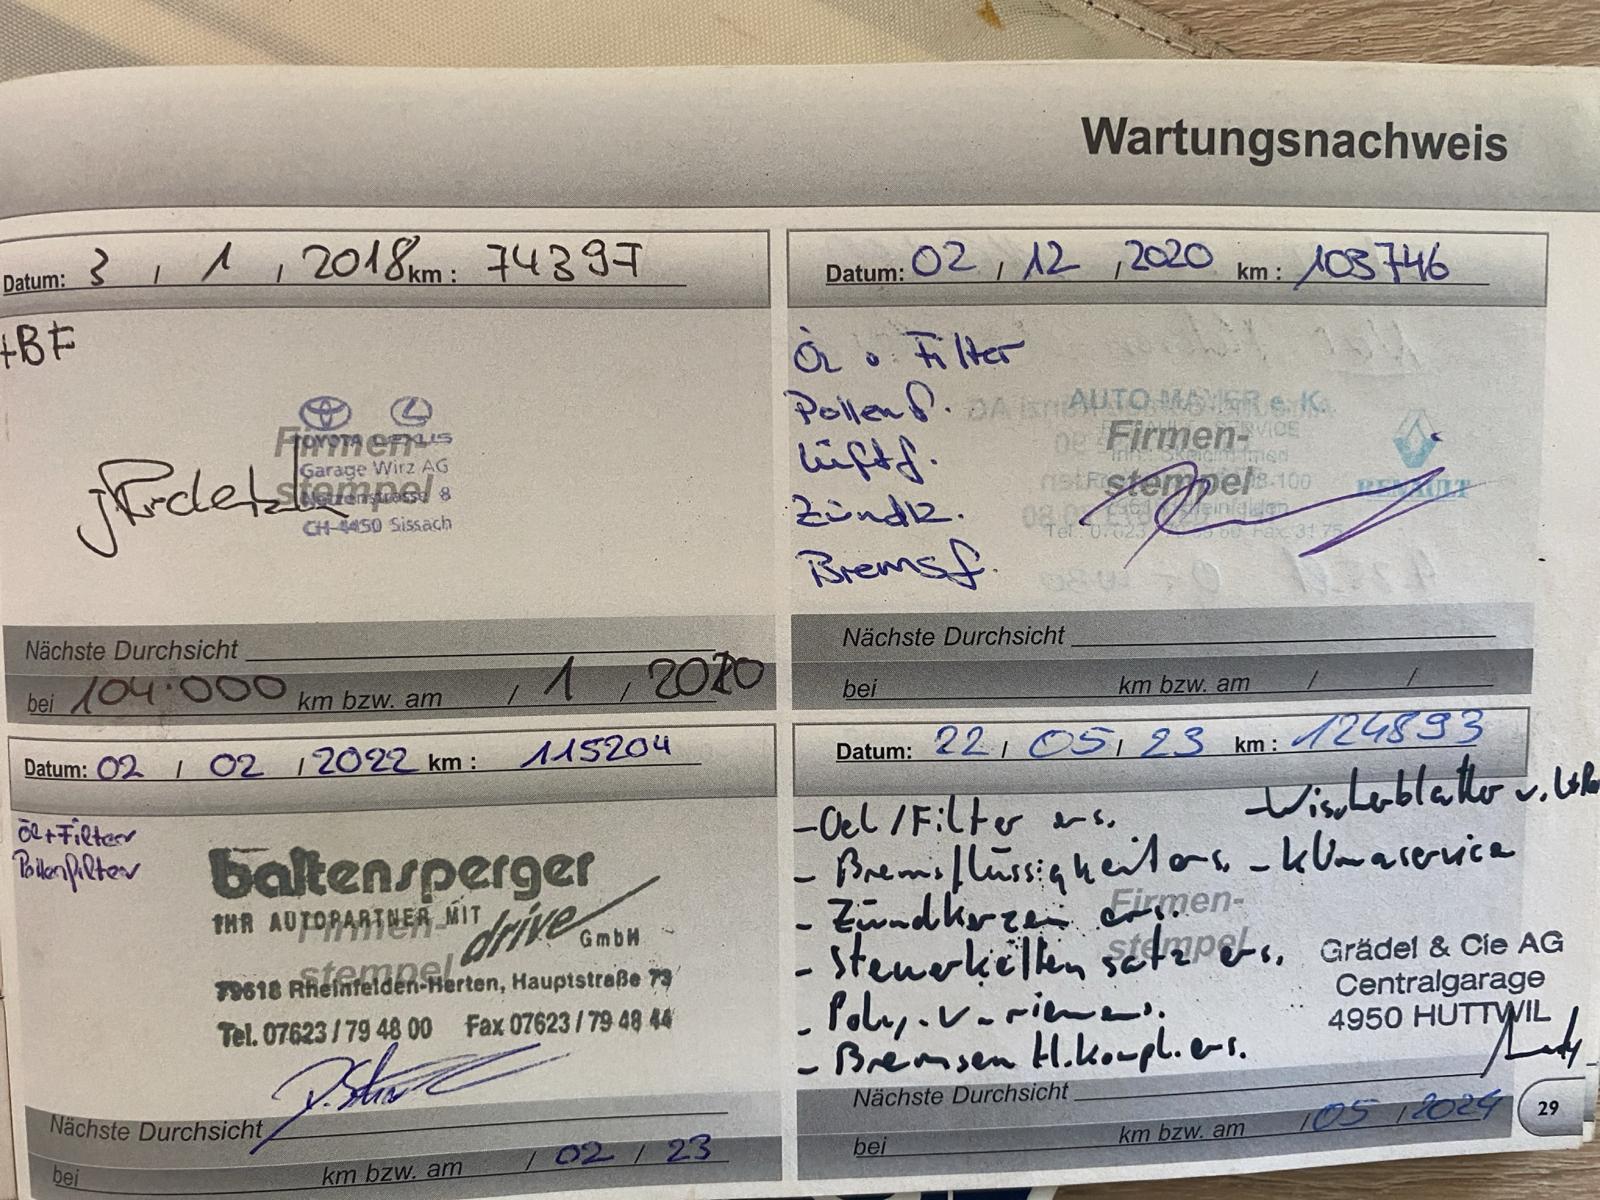 Wartungsnachweis
Datum: 3 / 1 / 2018 km: 74397
+BF
TOYOTA LEXUS
Firmen-
Garage Wirz AG
stempel
8
CH-4450 Sissach
Nächste Durchsicht
bei 104.000 km bzw. am / 1 / 2020
Datum: 02 / 12 / 2020 km: 103746
Öl o Filter
Pollenf.
Luftf.
Zündk.
Bremsf.
AUTO MAYER e.K.
Firmen-
stempel
RENAULT
Nächste Durchsicht
bei km bzw. am / /
Datum: 02 / 02 / 2022 km: 115204
Öl+Filter
Pollenfilter
baltensperger
IHR AUTOPARTNER MIT
drive GmbH
Firmen-
stempel
79618 Rheinfelden-Herten, Hauptstraße 73
Tel. 07623 / 79 48 00 Fax 07623 / 79 48 44
Nächste Durchsicht
bei km bzw. am / 02 / 23
Datum: 22 / 05 / 23 km: 124893
-Oel/Filter ers. -Wischerblätter v.
- Bremsflüssigkeit ers. - Klimaservice
- Zündkerzen ers.
Firmen-
- Steuerketten satz ers.
stempel
Grädel & Cie AG
Centralgarage
4950 HUTTWIL
- Poly.v-riemen ers.
- Bremsen H.kompl. ers.
Nächste Durchsicht
bei km bzw. am / 05 / 2024
29